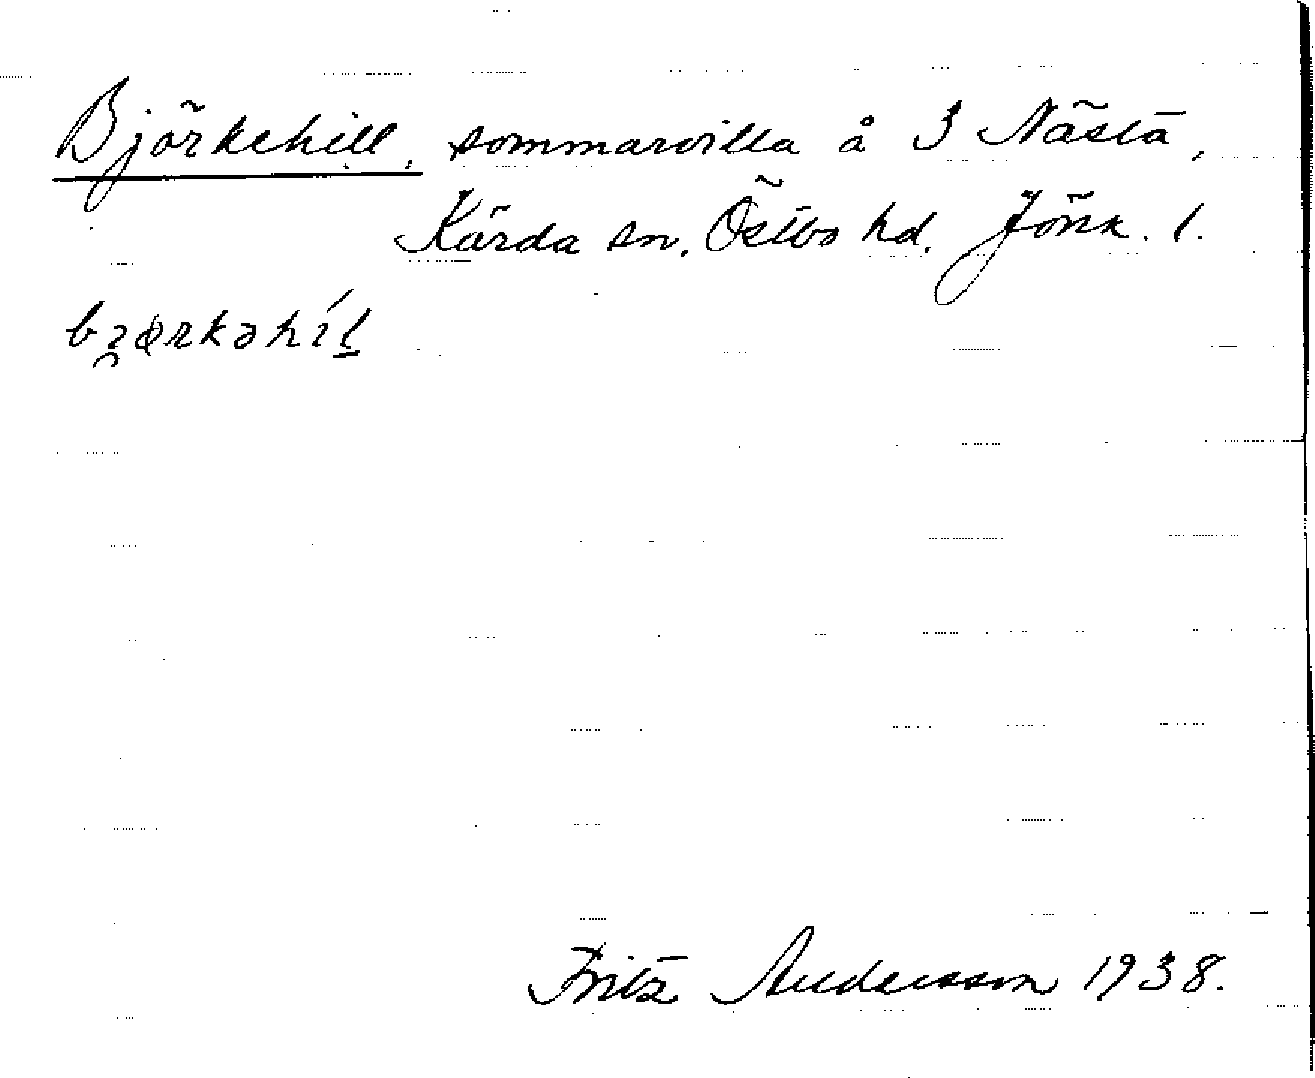 Björkehill, sommarvilla å 3 Nästa,
Kärda sn, Östbo hd. Jönk. l.
bjœrkəhíl
Fritz Andersson 1938.